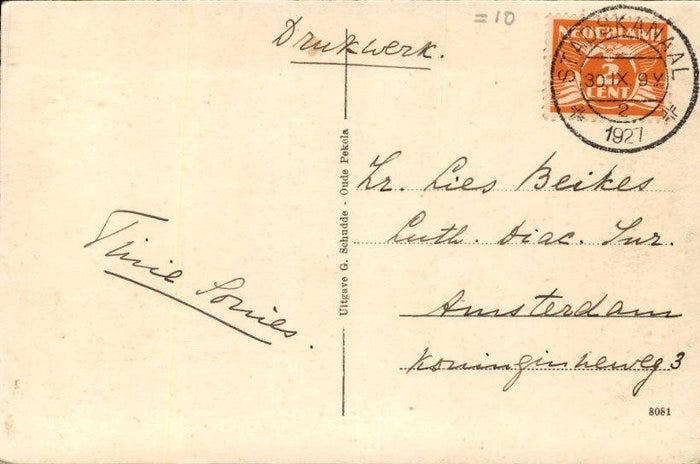 = 10
Drukwerk.
NEDERLAND
3
CENT
STADSKANAAL
30 IX 9V
2
1927
Uitgave G. Schudde - Oude Pekela
Zr. Lies Beikes
Luth. Diac. Inr.
Amsterdam
Koninginneweg 3
Tinie
8081